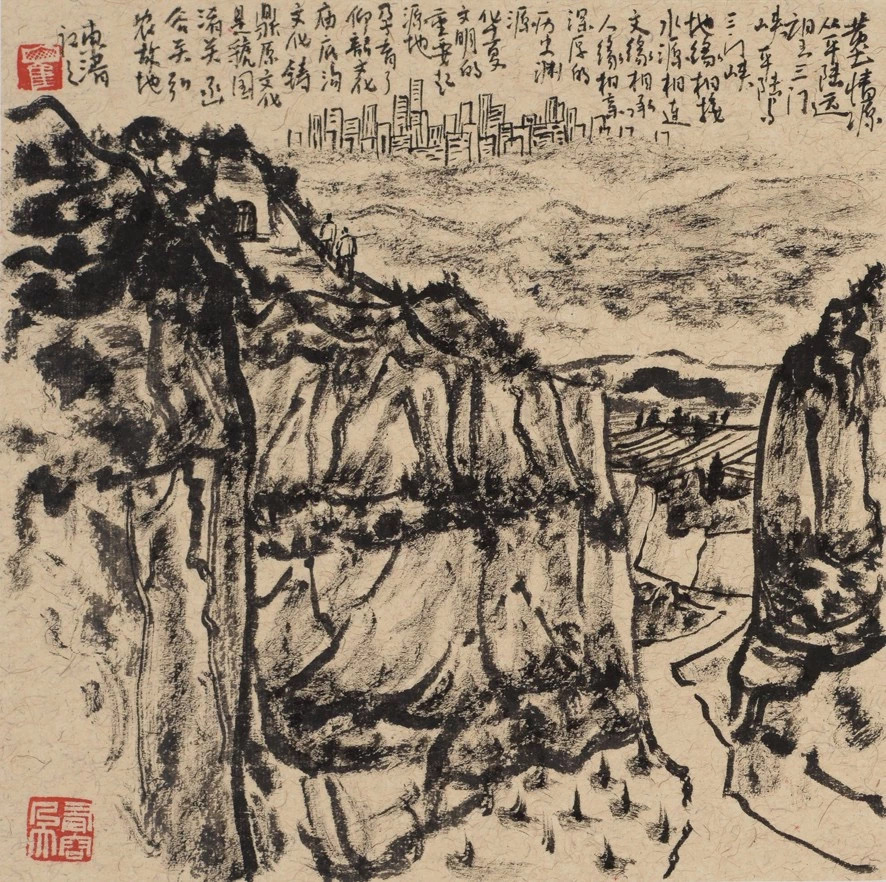 黄土情源
从平陆远
眺三门
峡平陆与
三门峡
地缘相接
水源相连
文缘相承
人缘相亲
深厚的
历史渊
源
华夏
文明的
重要起
源地
孕育了
仰韶文化
庙底沟
文化铸
鼎原文化
是虢国
函
谷关
农故地